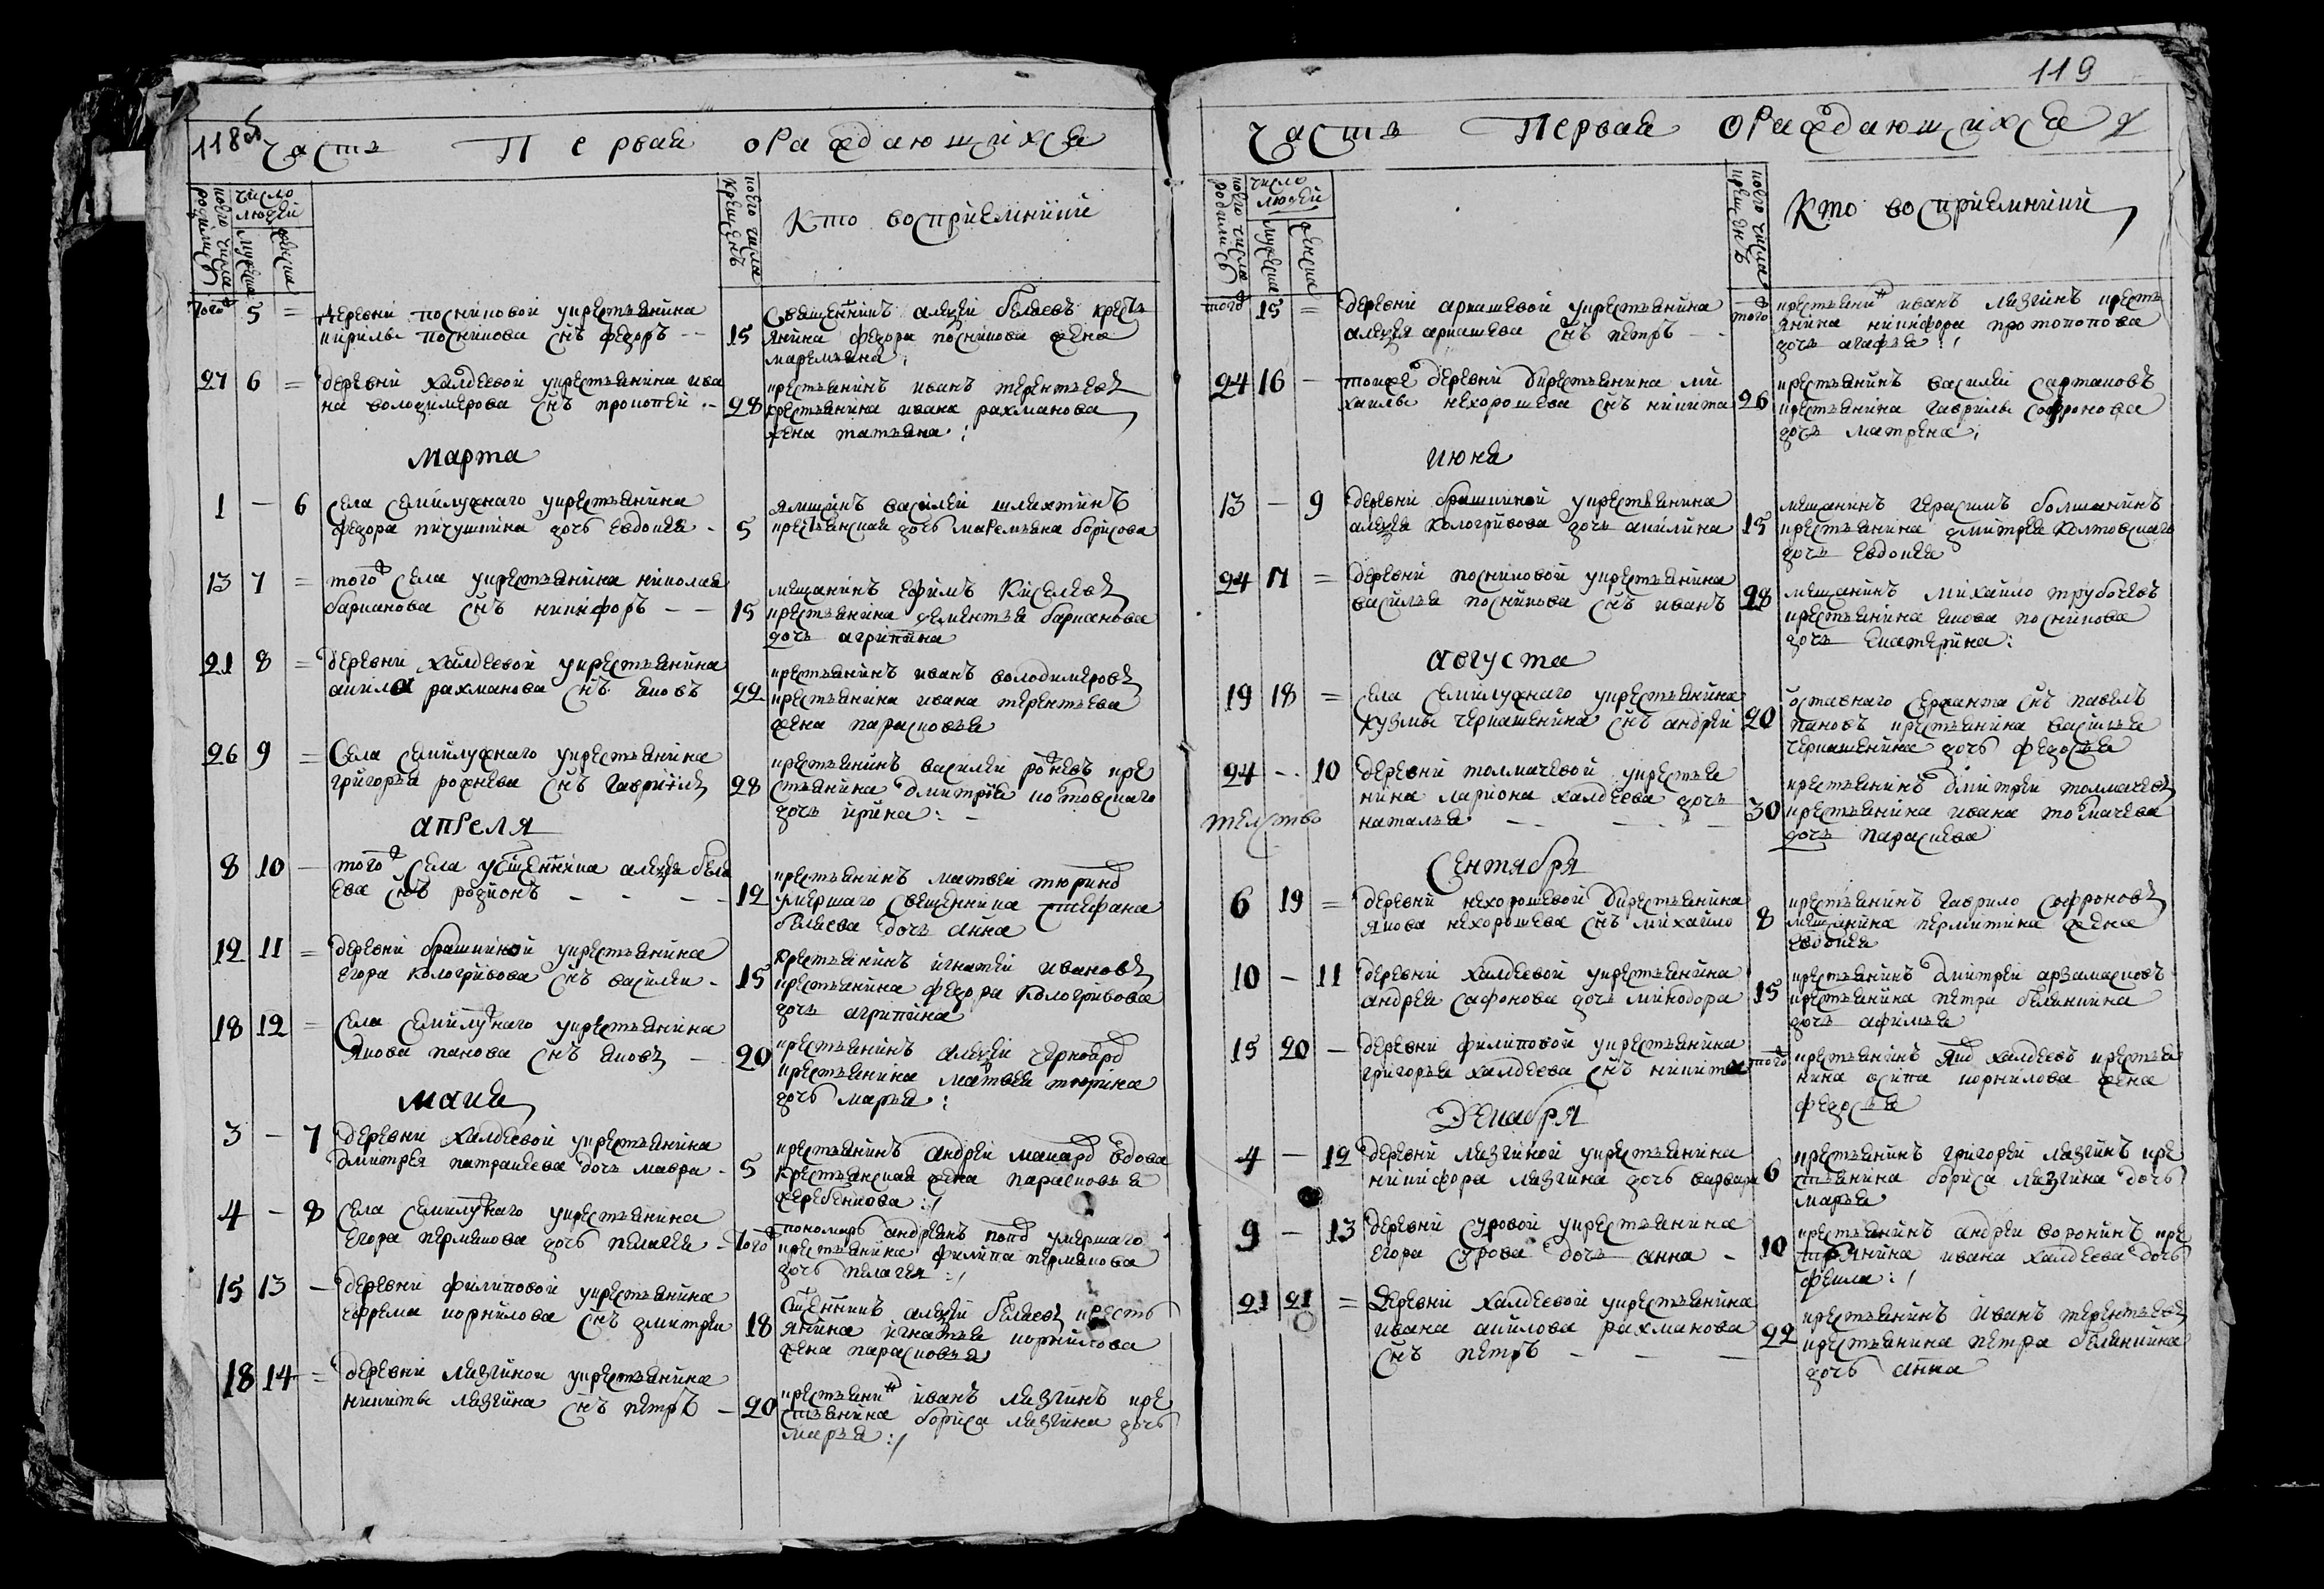 118об
Часть Первая о раждающихся
коего числа родились
число людей
мужеска
женска
коего числа крещенъ
Кто восприемники
того ж 5 = деревни посниковой у крестьянина
кирилы посникова снъ федоръ -- 15
Священникъ алеѯей беляевъ кресть
янина федора посникова жена
маремьяна
27 6 = деревни халдеевой у крестьянина ива
на володимерова снъ прокопеи - 28
крестьянинъ иванъ терентьевъ
крестьянина ивана рахманова
жена татьяна
марта
1 - 6 села семилужнаго у крестьянина
федора пичушкина дочь евдокея - 5
ямщикъ василеи шлихтинъ
крестьянская дочь маремьяна борисова
13 7 = того ж села у крестьянина николая
барканова снъ никифоръ - - 15
мещанинъ ефимъ киселевъ
крестьянина дементья барканова
дочь агрипина
21 8 = деревни халдеевой у крестьянина
акила рахманова снъ яковъ 22
крестьянинъ иванъ володимеровъ
крестьянина ивана терентьева
жена парасковья
26 9 = Села семилужнаго у крестьянина
григорья рожнева снъ гаврилъ 28
крестьянинъ василеи рожневъ кре
стьянина дмитрия колтовскаго
дочь ирина
апреля
8 10 - того ж села у священника алеѯея беля
ева снъ родионъ - - - - 12
крестьянинъ матвеи тюринъ
умершаго священника стефана
беляева дочь анна
12 11 = деревни брашкиной у крестьянина
егора кологривова снъ василеи - 15
крестьянинъ игнатеи ивановъ
крестьянина федора кологривова
дочь агрипина
18 12 = села семилужнаго у крестьянина
якова панова снъ яковъ - 20
крестьянинъ алеѯеи
крестьянина матвея тюрина
дочь марья
маия
3 - 7 деревни халдеевой у крестьянина
дмитрея патракеева дочь мавра - 5
крестьянинъ андреи макаровъ вдова
крестьянская жена парасковья
жеребенкова
4 - 8 села семилужнаго у крестьянина
егора пермякова дочь пелагея - того ж
пономарь андреянъ поповъ умершаго
крестьянина филипа пермякова
дочь пелагея
15 13 - деревни филиповой у крестьянина
ефрема корнилова снъ дмитреи 18
священникъ алеѯеи беляевъ кресть
янина игнатья корнилова
жена парасковья
18 14 = деревни лязгиной у крестьянина
никиты лязгина снъ петръ - 20
крестьянинъ иванъ лязгинъ кре
стьянина бориса лязгина дочь
марья
119
Часть Первая о раждающихся
коего числа родились
число людей
мужеска
женска
коего числа крещенъ
Кто восприемники
того ж 15 = деревни аркашевой у крестьянина
алеѯея аркашева снъ петръ - того ж
крестьянинъ иванъ лязгинъ кресть
янина никифора протопопова
дочь агафья
24 16 - тоиже деревни у крестьянина ми
хаилы нехорошева снъ никита 26
крестьянинъ василеи сартаковъ
крестьянина гаврилы софронова
дочь матрена
июня
13 - 9 деревни брашкиной у крестьянина
алеѯея кологривова дочь акилина 15
мещанинъ герасимъ болшанинъ
крестьянина дмитрея колтовскаго
дочь евдокея
24 17 = деревни посниковой у крестьянина
василья посникова снъ иванъ 28
мещанинъ михаило трубочевъ
крестьянина якова посникова
дочь екатерина
августа
19 18 = села семилужнаго у крестьянина
кузмы черкашенина снъ андреи 20
отставнаго сержанта снъ павелъ
пановъ крестьянина василья
черкашенина дочь федосья
24 - 10 деревни толмачевой у крестья
нина лариона халдеева дочь
наталья - - - - 30
крестьянинъ дмитреи толмачевъ
крестьянина ивана толмачева
дочь параскева
тельство
Сентября
6 19 = деревни нехорошевой у крестьянина
якова нехорошева снъ михаило 8
крестьянинъ гаврило софроновъ
мещанина пермитина жена
евдокея
10 - 11 деревни халдеевой у крестьянина
андрея сафонова дочь минодора 15
крестьянинъ дмитреи арзамасковъ
крестьянина петра белянкина
дочь афимья
15 20 - деревни филиповой у крестьянина
григорья халдеева снъ никита того ж
крестьянинъ халдеевъ крестья
нина осипа корнилова жена
федосья
Декабря
4 - 12 деревни лязгиной у крестьянина
никифора лязгина дочь варвара 6
крестьянинъ григорей лязгинъ кре
стьянина бориса лязгина дочь
марья
9 - 13 деревни суровой у крестьянина
егора сурова дочь анна - 10
крестьянинъ андреи воронинъ кре
стьянина ивана халдеева дочь
фекла
21 21 = Деревни халдеевой у крестьянина
ивана акилова рахманова
снъ петръ - - - 22
крестьянинъ иванъ терентьевъ
крестьянина петра белянкина
дочь анна